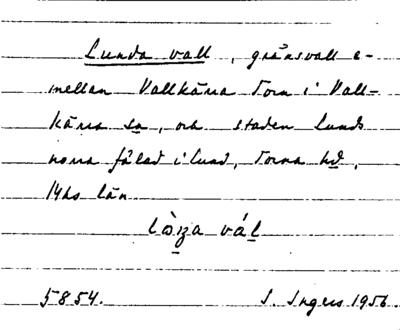 Lunda vall, gränsvall e-
mellan Vallkärra Torn i Vall-
kärra sn, och staden Lunds
norra fälad i Lund, Torna hd,
Mhs län
lò̱nza vá̱l
5854. I. Ingers 1956